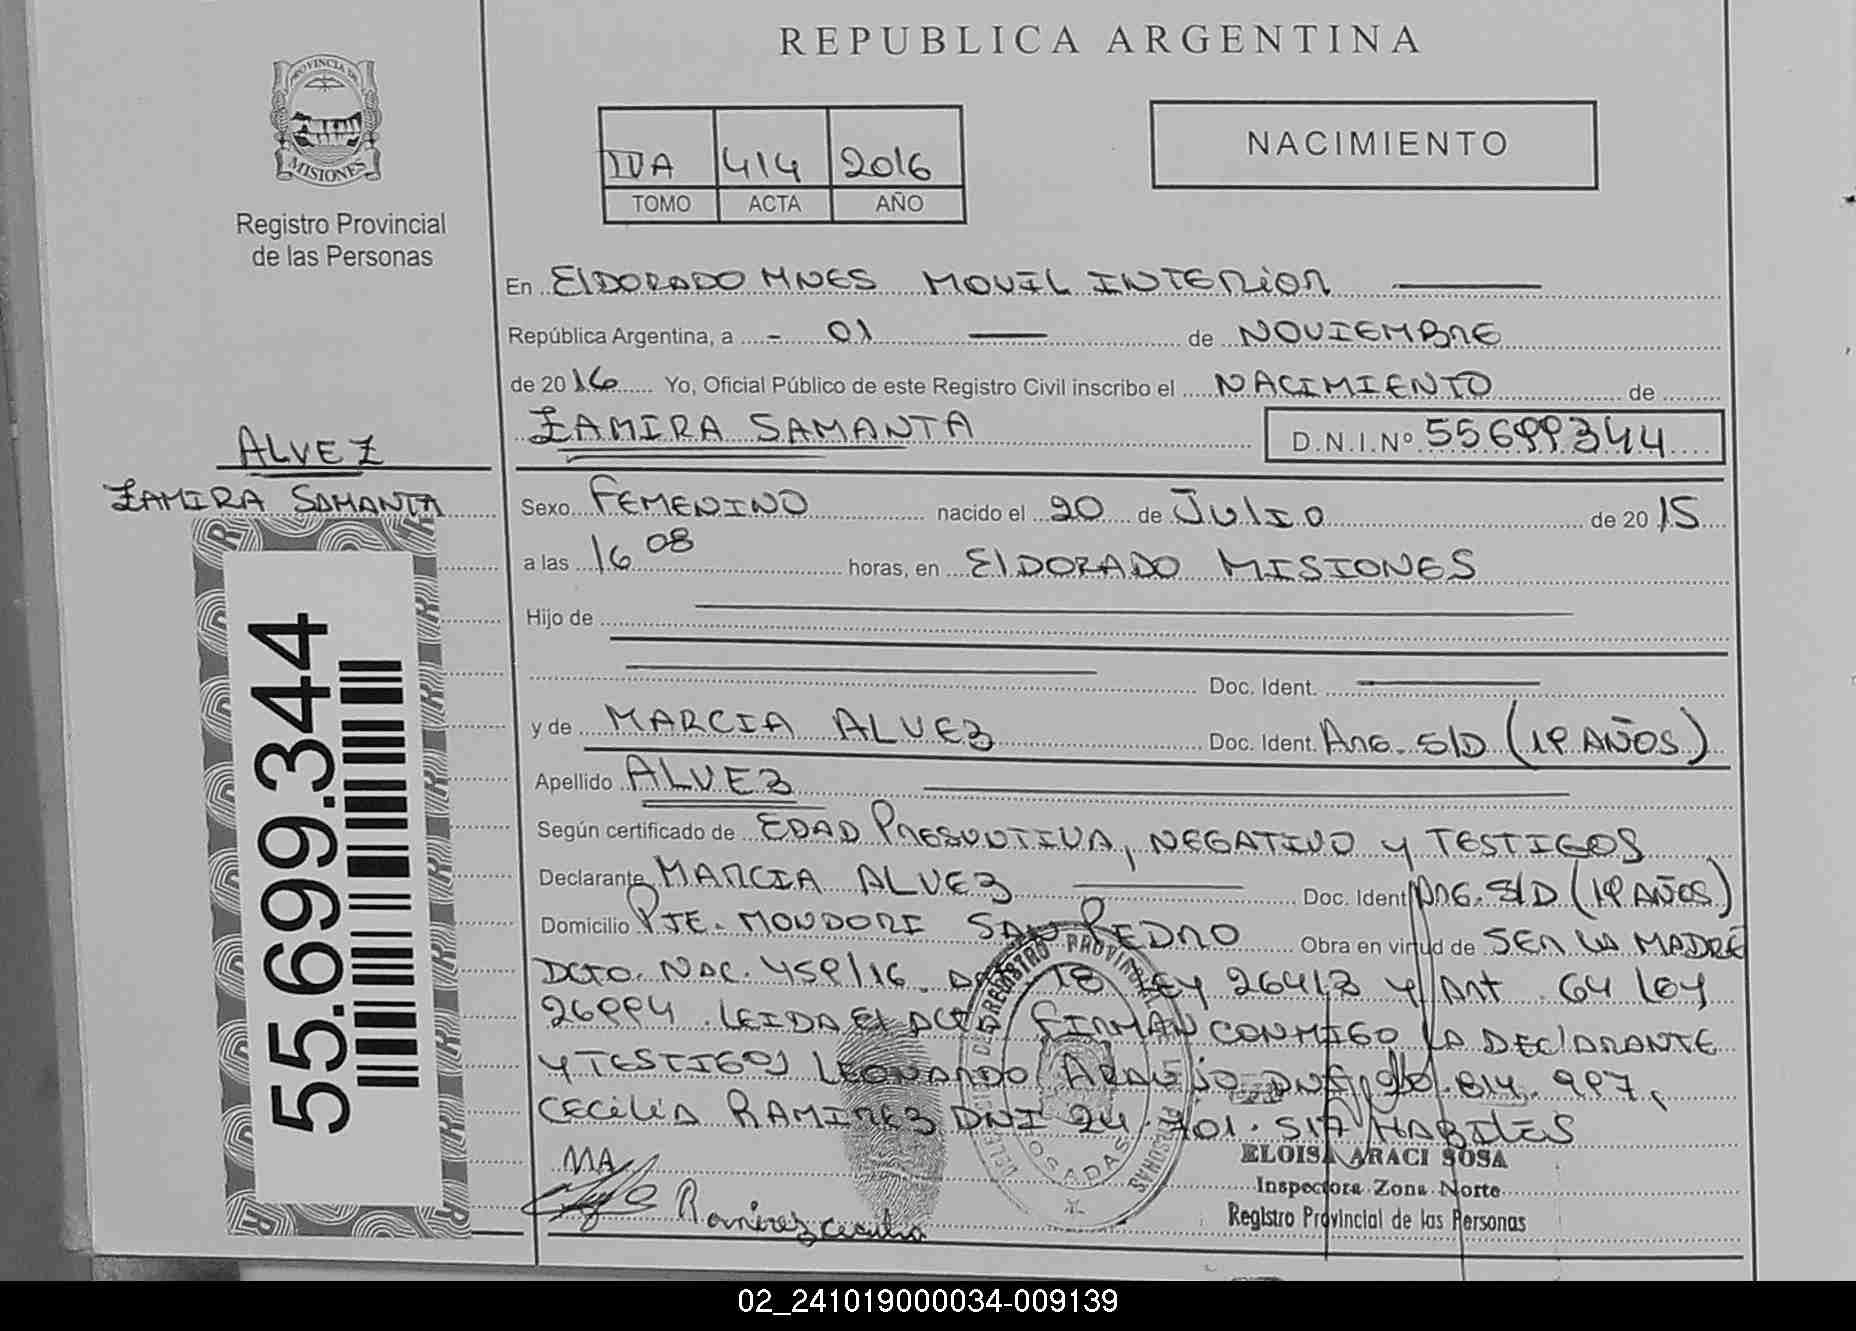 REPUBLICA ARGENTINA
PROVINCIA DE
MISIONES
Registro Provincial
de las Personas
IVA 414 2016
TOMO ACTA AÑO
NACIMIENTO
En ELDORADO MNES MOVIL INTERIOR
República Argentina, a - 01 de NOVIEMBRE
de 2016 Yo, Oficial Público de este Registro Civil inscribo el NACIMIENTO de
ZAMIRA SAMANTA D.N.I.Nº 55699344
ALVEZ
ZAMIRA SAMANTA
Sexo FEMENINO nacido el 20 de JULIO de 2015
a las 16 08 horas, en ELDORADO MISIONES
Hijo de
Doc. Ident.
y de MARCIA ALVEZ Doc. Ident. ARG. S/D (19 AÑOS)
Apellido ALVEZ
Según certificado de EDAD PRESUNTIVA, NEGATIVO Y TESTIGOS
Declarante MARCIA ALVEZ Doc. Ident. ARG. S/D (19 AÑOS)
Domicilio PJE. MONDORI SAN PEDRO Obra en virtud de SER LA MADRE
DCTO. NAC. 459/16. 18 LEY 26413 Y ART. 64 LEY
26994. LEIDA EL ACTA FIRMAN CONMIGO LA DECLARANTE
Y TESTIGOS LEONARDO ARAUJO DNI 997,
CECILIA RAMIREZ DNI 24.701.517 HABILES
55.699.344
MA
Ramirez Cecilia
REGISTRO PROVINCIAL DE LAS PERSONAS
POSADAS
ELOISA ARACI SOSA
Inspectora Zona Norte
Registro Provincial de las Personas
02_241019000034-009139